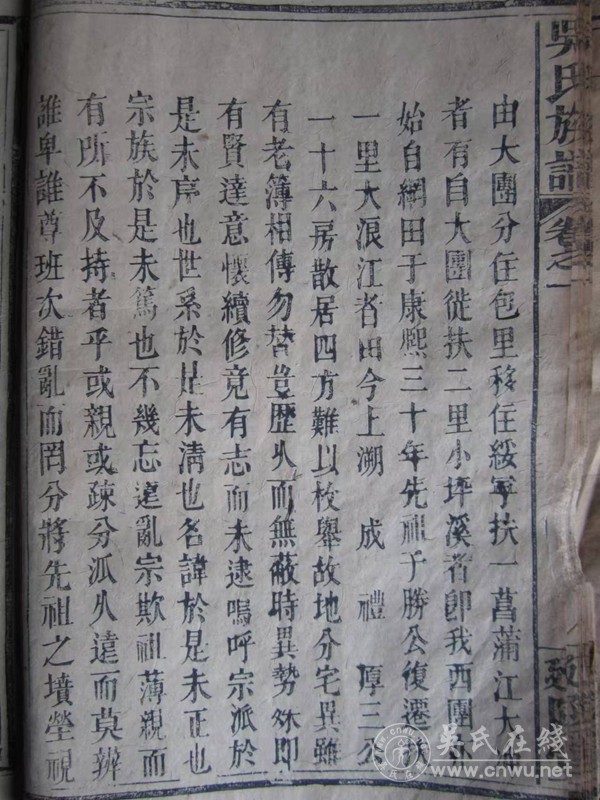 吳氏族譜
卷之一
由大團分住包里移住綏寧扶一菖蒲江大
者有自大團徙扶二里小坪溪者卽我西團公
始自網田于康熙三十年先祖于勝公復遷扶
一里大浪江者田今上溯 成 禮 厚三公
一十六房散居四方難以枚舉故地分宅異雖
有老簿相傳勿替豈歷久而無蔽時異勢殊即
有賢達意懷續修竟有志而未逮嗚呼宗派於
是未序也世系於是未清也名諱於是未正也
宗族於是未篤也不幾忘遠亂宗欺祖薄親而
有所不及持者乎或親或疎分派久遠而莫辨
誰卑誰尊班次錯亂而罔分將先祖之墳塋視
吴氏在线
www.cnwu.net